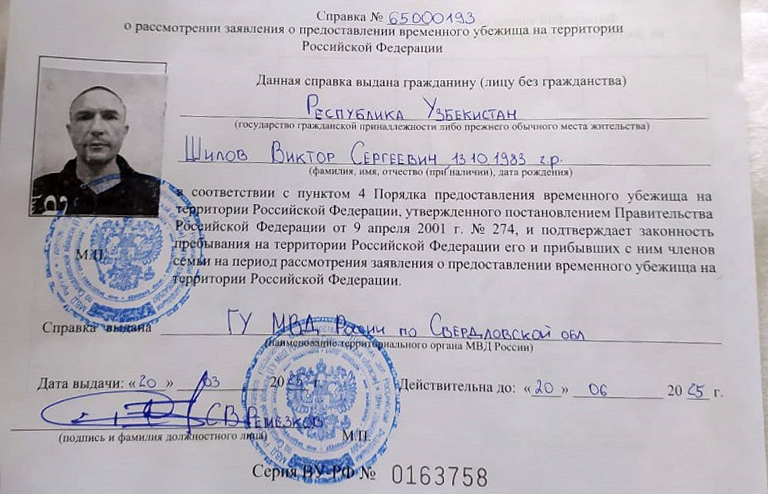 Справка № 65000193
о рассмотрении заявления о предоставлении временного убежища на территории
Российской Федерации
Данная справка выдана гражданину (лицу без гражданства)
Республика Узбекистан
(государство гражданской принадлежности либо прежнего обычного места жительства)
Шилов Виктор Сергеевич, 13.10.1983 г.р.
(фамилия, имя, отчество (при наличии), дата рождения)
в соответствии с пунктом 4 Порядка предоставления временного убежища на
территории Российской Федерации, утвержденного постановлением Правительства
Российской Федерации от 9 апреля 2001 г. № 274, и подтверждает законность
пребывания на территории Российской Федерации его и прибывших с ним членов
семьи на период рассмотрения заявления о предоставлении временного убежища на
территории Российской Федерации.
М.П.
Справка выдана ГУ МВД России по Свердловской обл
(наименование территориального органа МВД России)
Дата выдачи: «20» 03 2025 г. Действительна до: «20» 06 2025 г.
С В Ремезков
(подпись и фамилия должностного лица) М.П.
Серия ВУ-РФ № 0163758